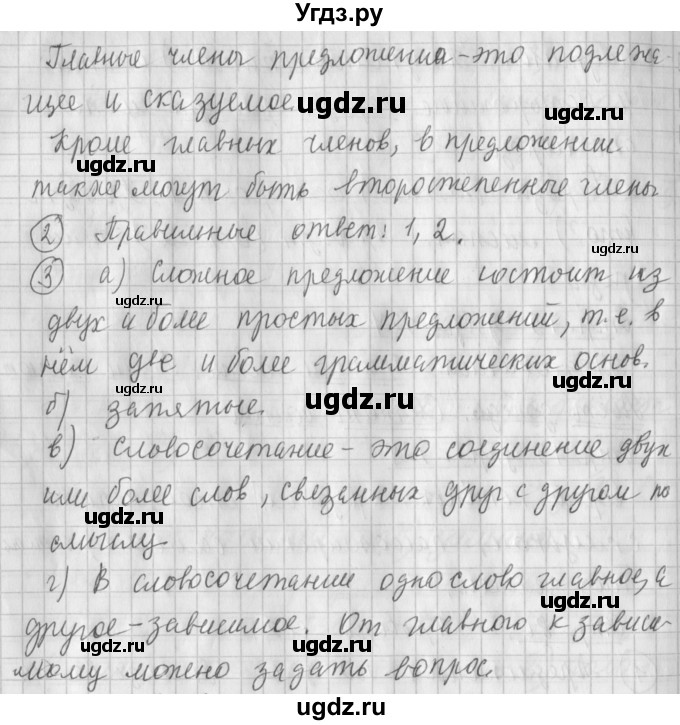 Угдз.ру
Главные члены предложения - это подлежа-
щее и сказуемое.
ugdz.ru
Кроме главных членов, в предложении
ugdz.ru
также могут быть второстепенные члены
② Правильные ответ: 1, 2.
ugdz.ru
③ а) Сложное предложение состоит из
ugdz.ru
двух и более простых предложений, т.е. в
нём две и более грамматических основ.
ugdz.ru
ugdz.ru
б) запятые.
в) Словосочетание - это соединение двух
или более слов, связанных друг с другом по
ugdz.ru
смыслу.
г) В словосочетании одно слово главное, а
ugdz.ru
другое - зависимое. От главного к зависи-
мому можно задать вопрос.
ugdz.ru